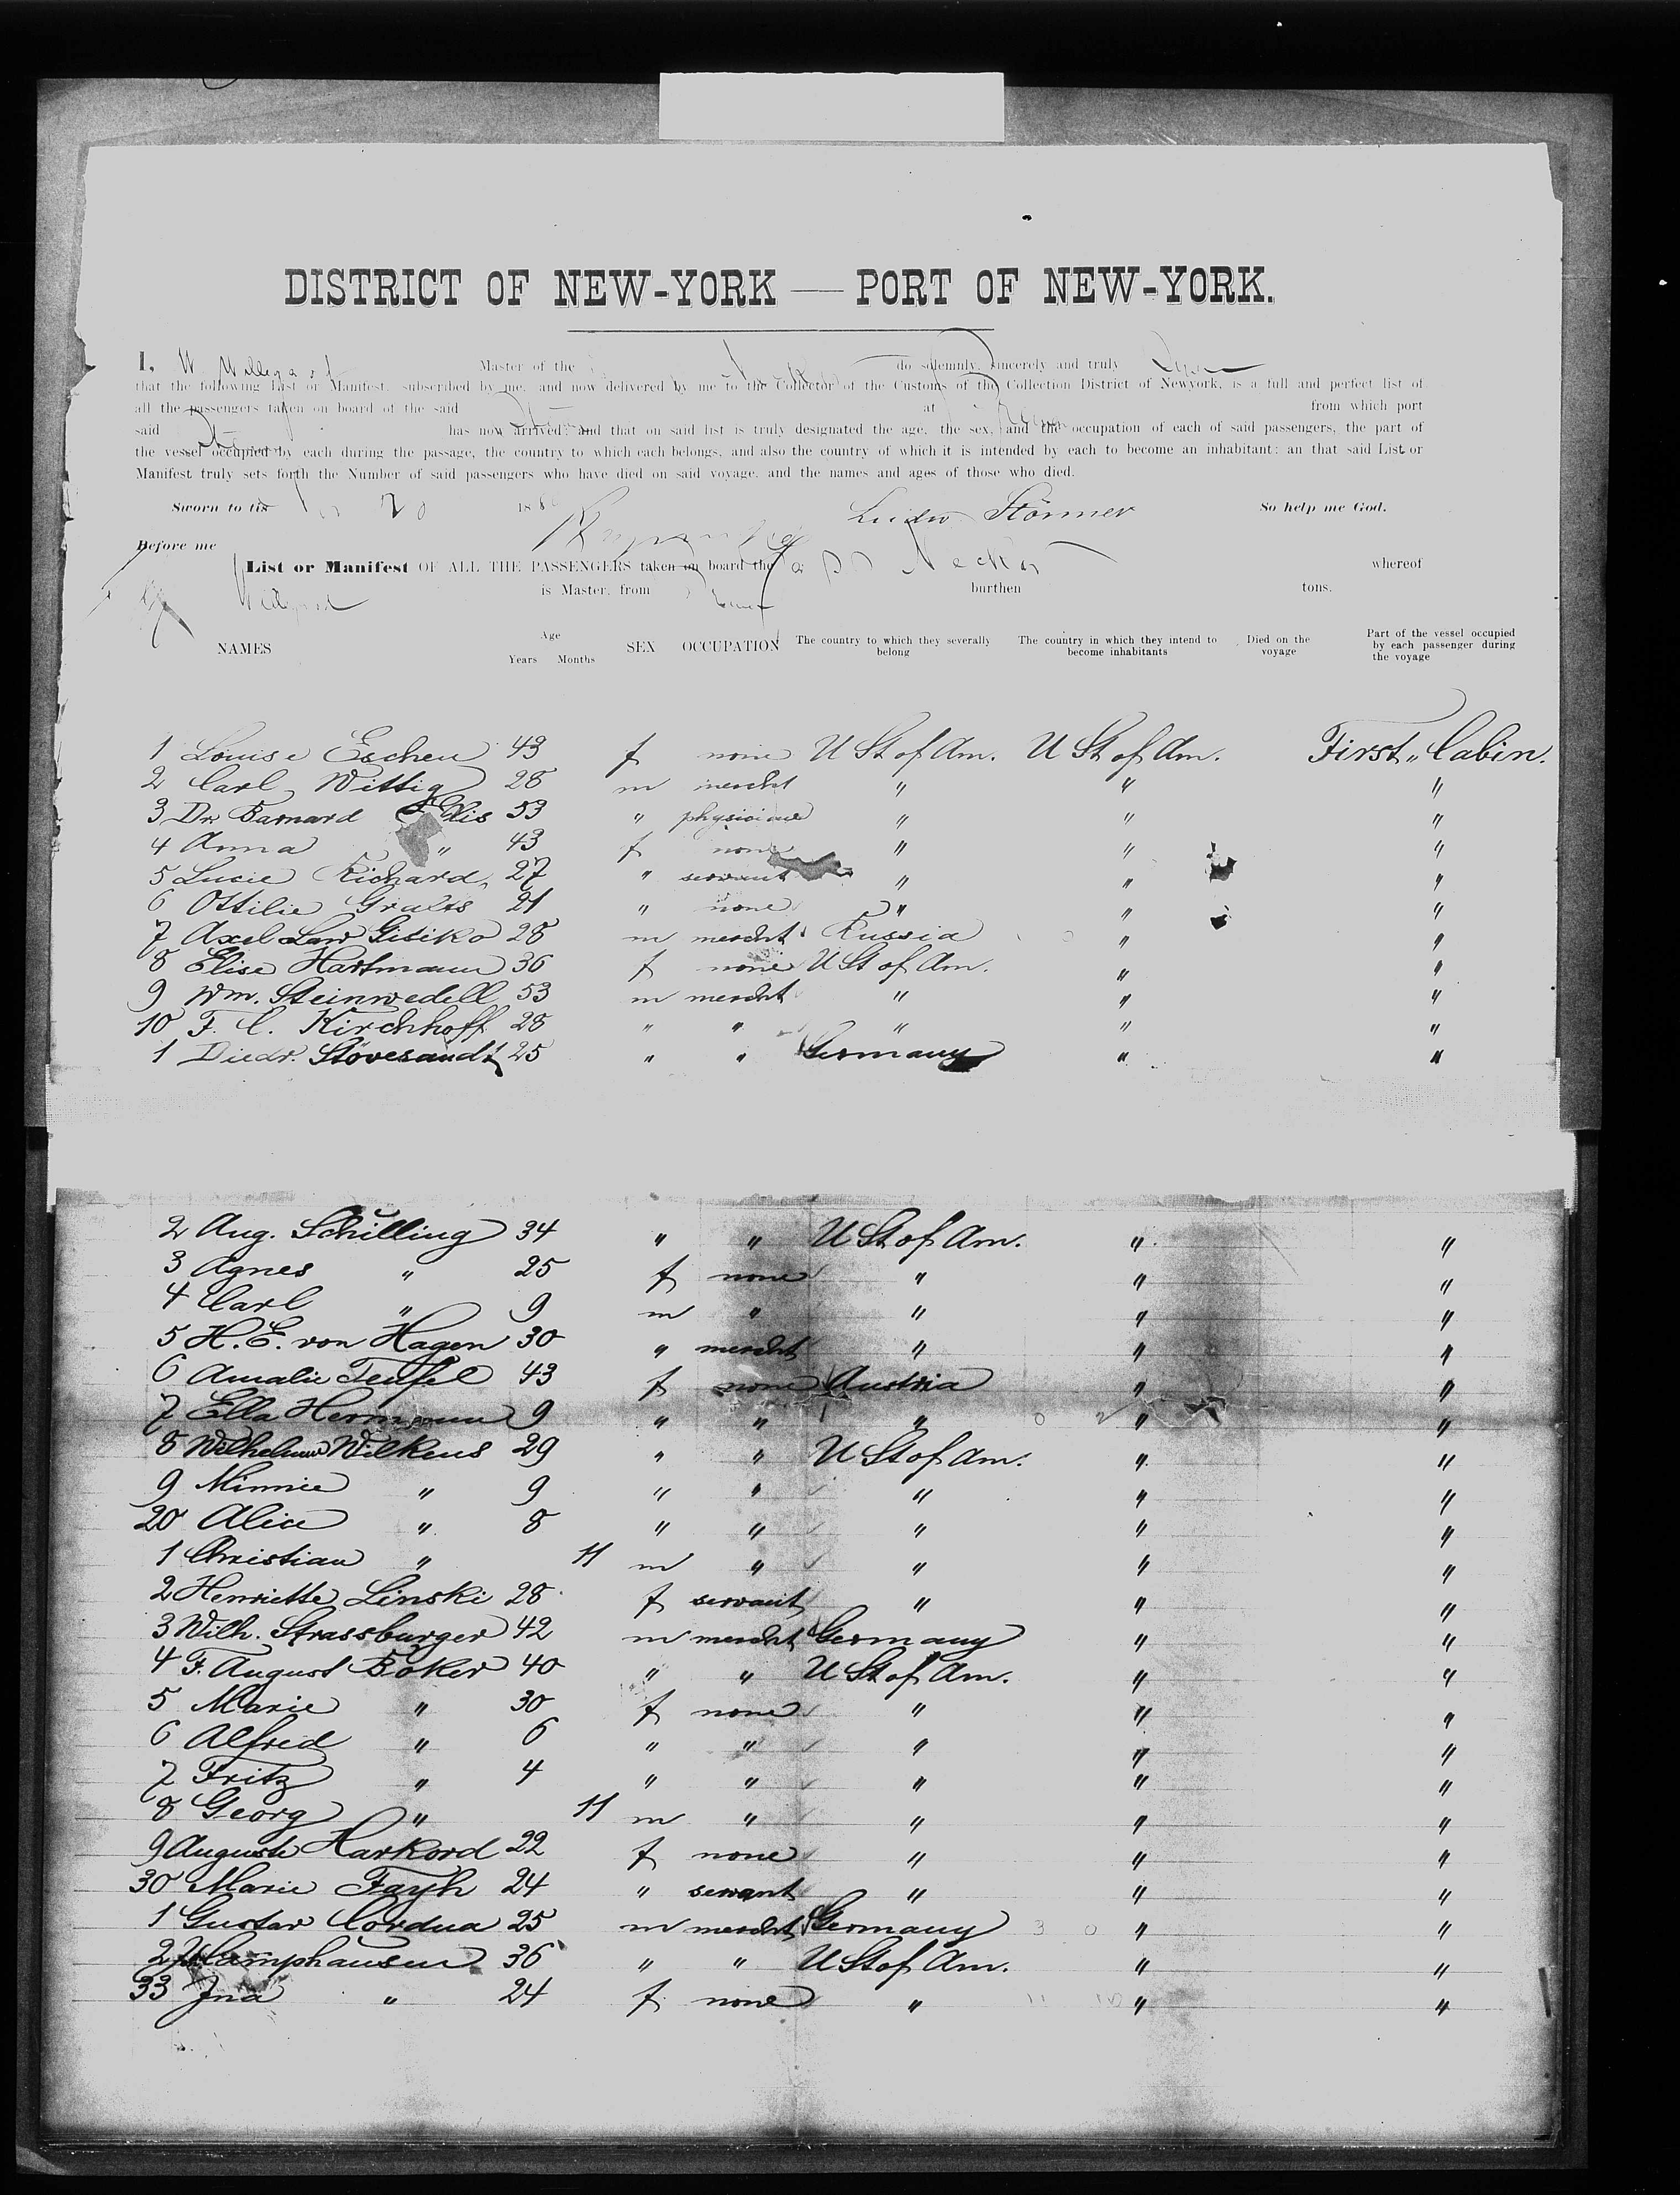 DISTRICT OF NEW-YORK — PORT OF NEW-YORK.
I, W. Master of the do solemnly, sincerely and truly
that the following List or Manifest, subscribed by me, and now delivered by me to the Collector of the Customs of the Collection District of Newyork, is a full and perfect list of
all the passengers taken on board of the said at from which port
said has now arrived; and that on said list is truly designated the age, the sex, and the occupation of each of said passengers, the part of
the vessel occupied by each during the passage, the country to which each belongs, and also the country of which it is intended by each to become an inhabitant; an that said List or
Manifest truly sets forth the Number of said passengers who have died on said voyage, and the names and ages of those who died.
Sworn to tis 20 188 Störmer So help me God.
Before me
List or Manifest OF ALL THE PASSENGERS taken on board the Neckar whereof
is Master, from burthen tons.
NAMES Age Years Months SEX OCCUPATION The country to which they severally belong The country in which they intend to become inhabitants Died on the voyage Part of the vessel occupied by each passenger during the voyage
1 Louise Eschen 43 f none U St of Am. U St of Am. First Cabin.
2 Carl Wittig 28 m mercht " " "
3 Dr. Barnard Ellis 53 " physician " " "
4 Anna " 43 f none " " "
5 Lucie Richard 27 " servant " " "
6 Ottilie 21 " none " " "
7 Axel Gisiko 28 m mercht Russia " "
8 Elise Hartmann 36 f none U St of Am. " "
9 Wm. Steinwedell 53 m mercht " " "
10 F. C. Kirchhoff 28 " " " " "
1 Diedr. Stövesandt 25 " " Germany " "
2 Aug. Schilling 34 " " U St of Am. " "
3 Agnes " 25 f none " " "
4 Carl " 9 m " " " "
5 H. E. von Hagen 30 " mercht " " "
6 Amalie Teufel 43 f none Austria " "
7 Ella Hermann 9 " " " " "
8 Wilhelmine Wilkens 29 " " U St of Am. " "
9 Minnie " 9 " " " " "
20 Alice " 8 " " " " "
1 Christian " 11 m " " " "
2 Henriette Linski 28 f servant " " "
3 Wilh. Strassburger 42 m mercht Germany " "
4 F. August Boker 40 " " U St of Am. " "
5 Marie " 30 f none " " "
6 Alfred " 6 " " " " "
7 Fritz " 4 " " " " "
8 Georg " 11 m " " " "
9 Auguste Harkord 22 f none " " "
30 Marie Fayh 24 " servant " " "
1 Gustav Cordua 25 m mercht Germany " "
2 Camphausen 36 " " U St of Am. " "
33 Ina " 24 f none " " "